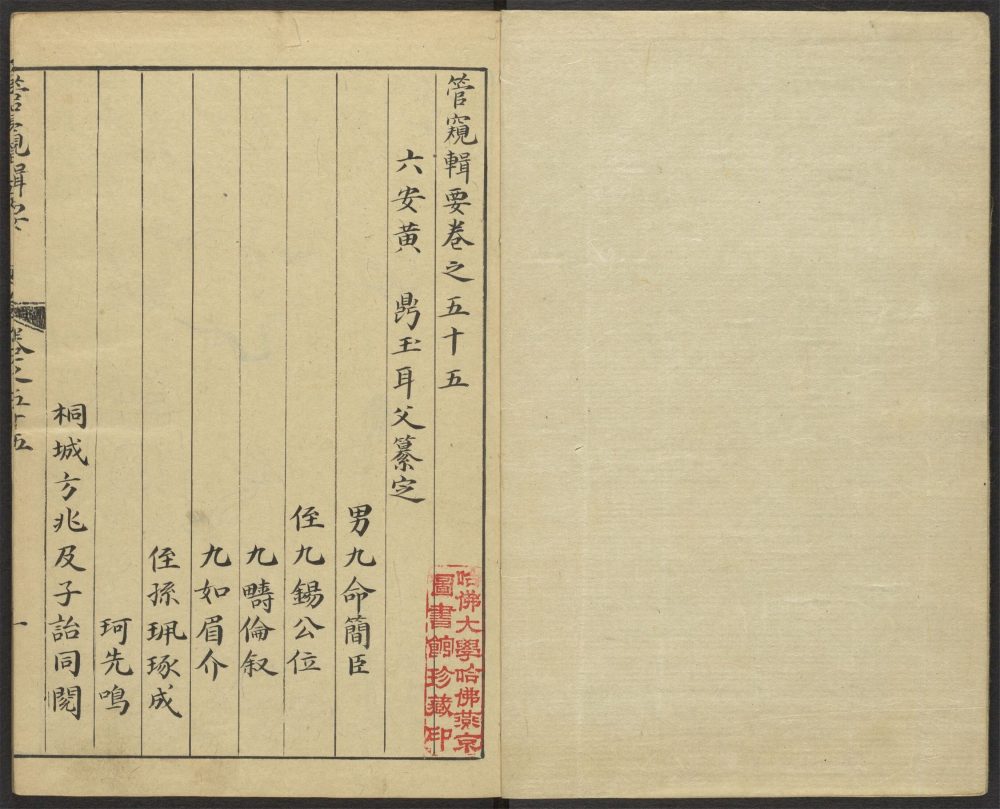 管窺輯要卷之五十五
六安黃　鼎玉耳父纂定
男九命簡臣
侄九錫公位
九疇倫叙
九如眉介
侄孫珮琢成
珂先鳴
桐城方兆及子詒同閱
管窺輯要
卷之五十五
一
哈佛大學哈佛燕京
圖書館珍藏印